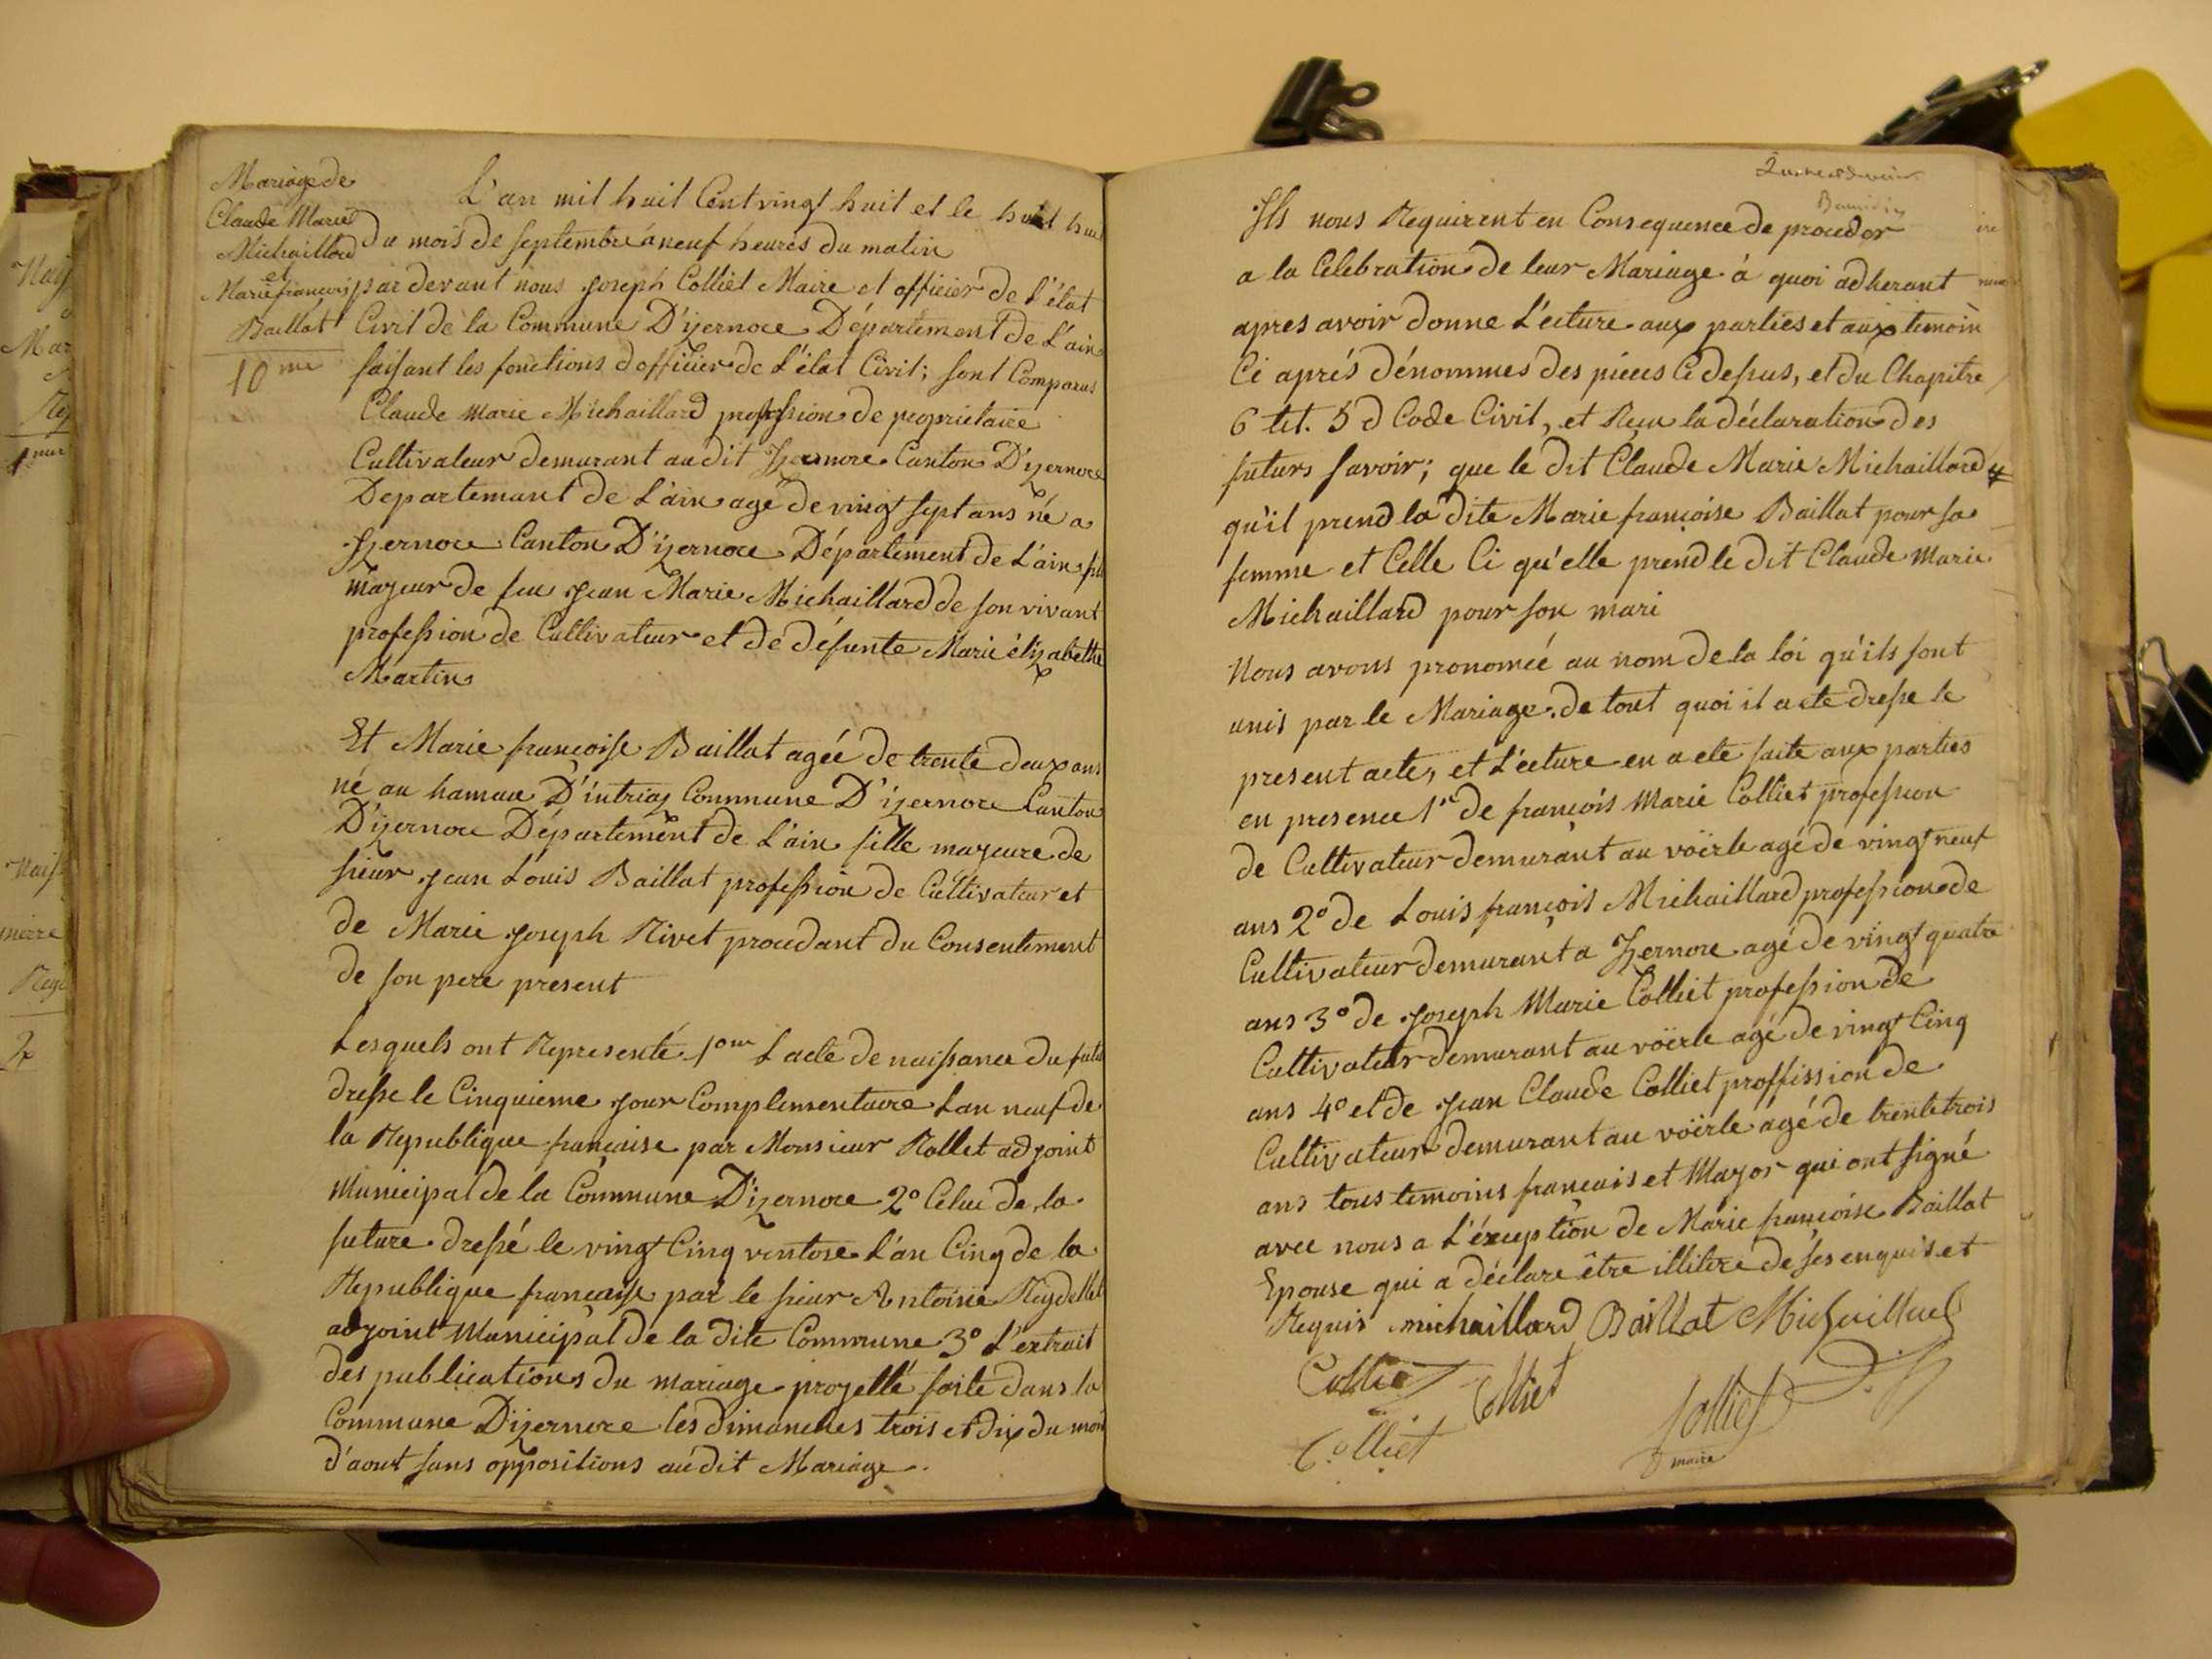 Mariage de
Claude Marie
Michaillard
et
Marie françois
Baillat
10me
L'an mil huit Cent vingt huit et le huit
du mois de septembre a neuf heures du matin
par devant nous Joseph Colliet Maire et officier de l'état
Civil de la Commune D'izernore Département de L'ain
faisant les fonctions d'officier de L'état Civil; sont Comparus
Claude Marie Michaillard profession de proprietaire
Cultivateur demurant audit Izernore Canton D'izernore
Departemant de L'ain agé de vingt sept ans né a
Izernore Canton D'izernore Département de L'ain fils
majeur de feu Jean Marie Michaillard de son vivant
profession de Cultivateur et de défunte Marie élizabethe
Martin
Et Marie françoise Baillat agée de trente deux ans
né au hamau D'intriaz Commune D'izernore Canton
D'izernore Département de L'ain fille majeure de
sieur Jean Louis Baillat profession de Cultivateur et
de Marie Joseph Rivet procedant du Consentement
de son pere present
Lesquels ont Representé 1em L'acte de naissance du futur
dresse le Cinquieme Jour Complementaire Lan neuf de
la Republique française par Monsieur Rollet adjoint
Municipal de la Commune D'izernore 2° Celui de la
future dressé le vingt Cinq ventose L'an Cinq de la
Republique française par le sieur Antoine Reydellet
adjoint Municipal de la dite Commune 3° L'extrait
des publications du mariage projetté faite dans la
Commune D'izernore les dimanches trois et dix du moi
d'aout sans oppositions audit Mariage.
Ils nous Requirent en Consequence de proceder
a la Celebration de leur Mariage a quoi adherant
apres avoir donne L'ecture aux parties et aux temoin
Ci aprés dénommes des pieces Ci dessus, et du Chapitre
6 tit. 5 d Code Civil, et Reçu la déclaration des
futurs savoir; que le dit Claude Marie Michaillard
qu'il prend la dite Marie françoise Baillat pour sa
femme et Celle Ci qu'elle prend le dit Claude Marie
Michaillard pour son mari
Nous avons pronomcé au nom de la loi qu'ils sont
unis par le Mariage. de tout quoi il a ete dresse le
present acte, et L'ecture en a ete faite aux parties
en presence 1er de françois Marie Colliet profession
de Cultivateur demurant au voërle agé de vingt neuf
ans 2° de Louis françois Michaillard profession de
Cultivateur demurant a Izernore agé de vingt quatre
ans 3° de Joseph Marie Colliet profession de
Cultivateur demurant au voërle agé de vingt Cinq
ans 4° et de Jean Claude Colliet proffission de
Cultivateur demurant au voërle agé de trente trois
ans tous temoins français et Major qui ont signé
avec nous a L'éxception de Marie françoise Baillat
Epouse qui a déclaré être illitere de ses enquis et
Requis michaillard Baillat Michaillard
Colliet Colliet
Colliet Colliet
maire